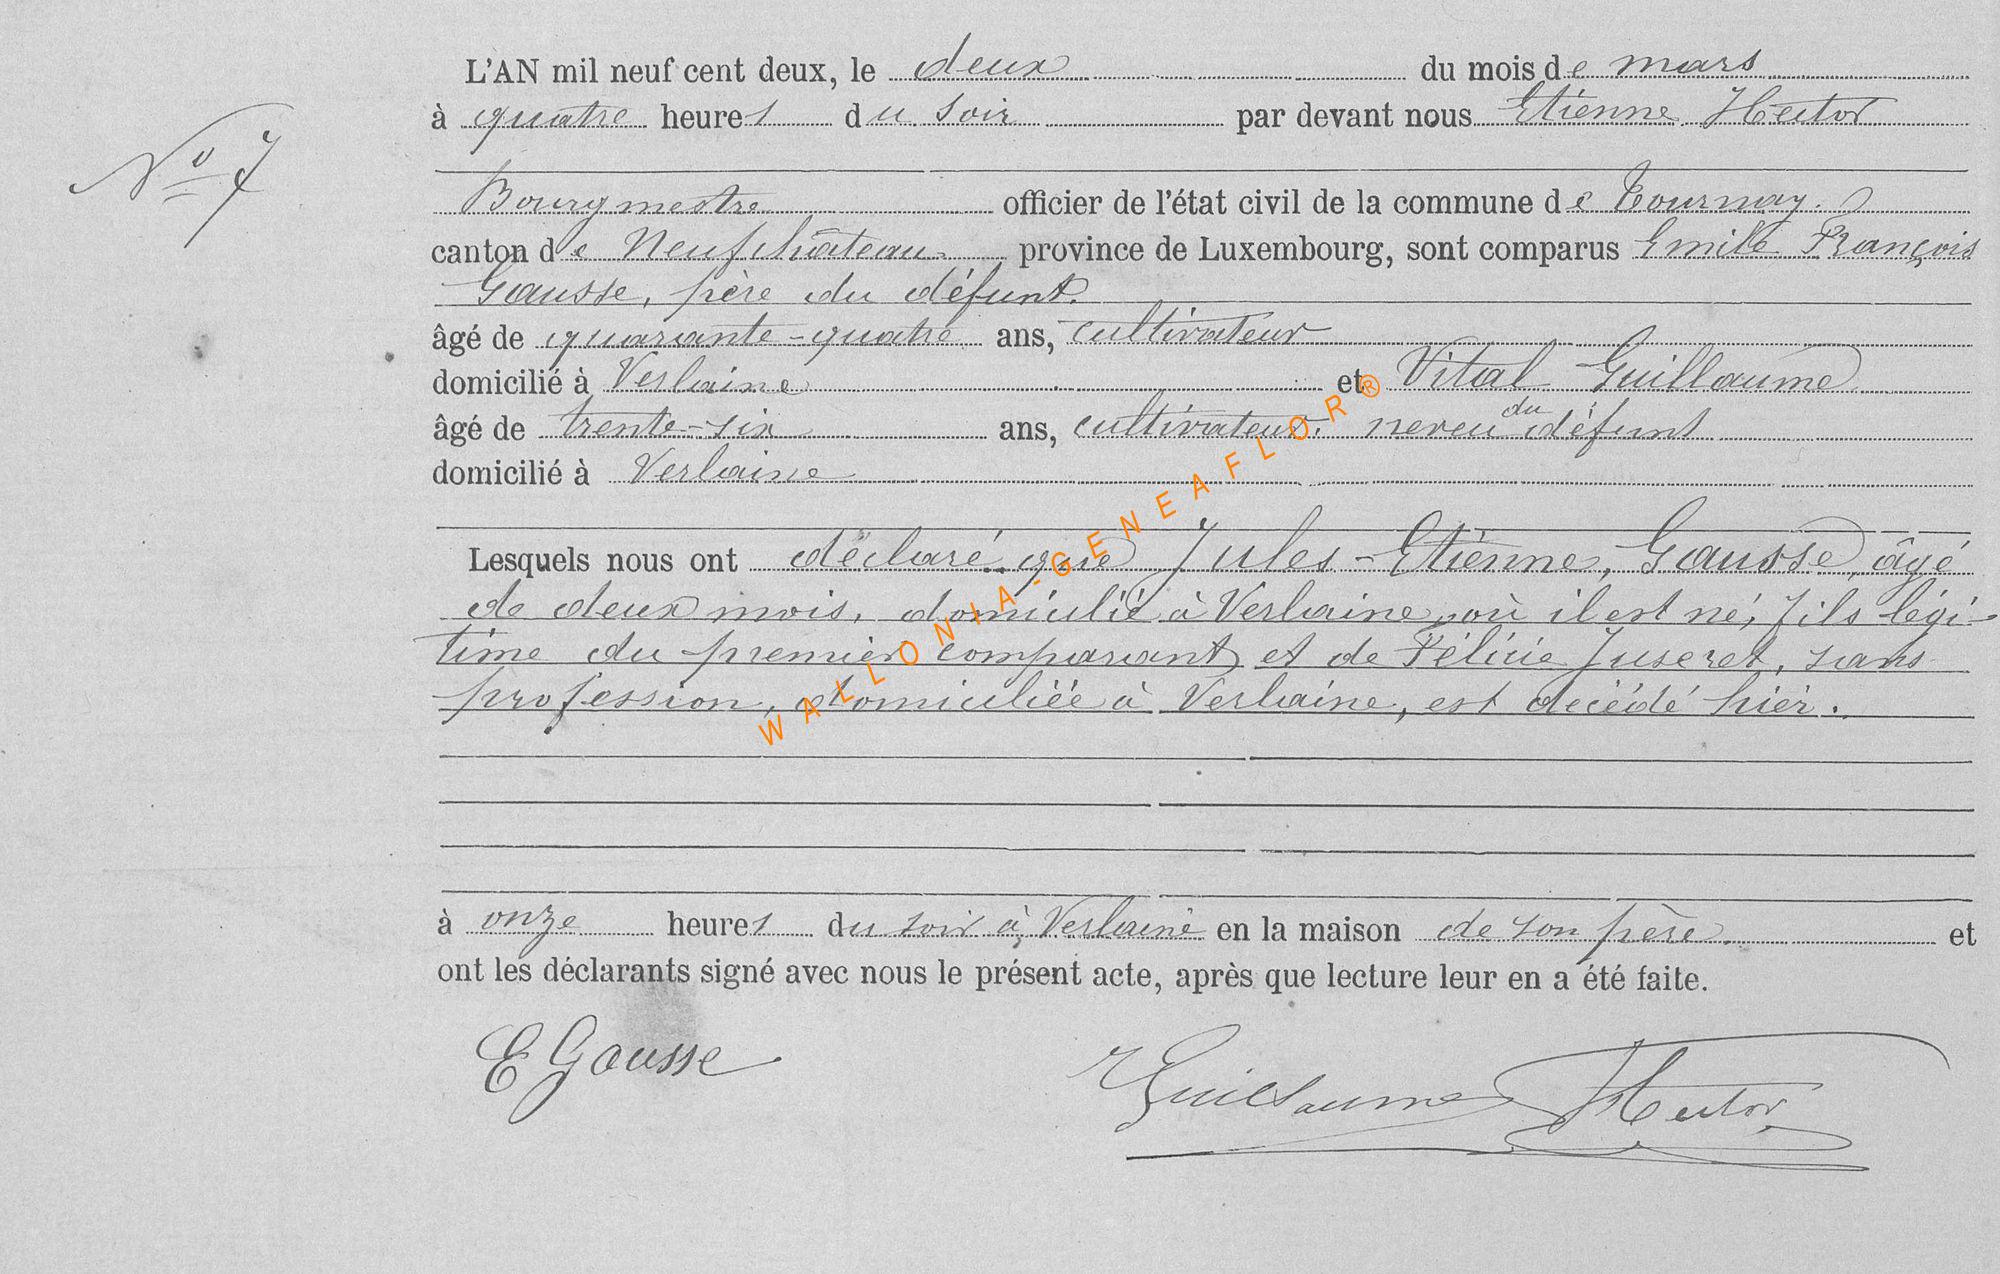 L'AN mil neuf cent deux, le deux du mois de mars
à quatre heures du soir par devant nous Etienne Hector
N° 7
Bourgmestre officier de l'état civil de la commune de Tournay.
canton de Neufchâteau province de Luxembourg, sont comparus Emile François
Gausse, père du défunt.
âgé de quarante-quatre ans, cultivateur
domicilié à Verlaine et Vital Guillaume
âgé de trente-six ans, cultivateur. neveu du défunt
domicilié à Verlaine
Lesquels nous ont déclaré que Jules-Etienne, Gausse, âgé
de deux mois, domicilié à Verlaine où il est né, fils légi-
time du premier comparant et de Félicie Juseret, sans
profession, domiciliée à Verlaine, est décédé hier.
à onze heures du soir à Verlaine en la maison de son père. et
ont les déclarants signé avec nous le présent acte, après que lecture leur en a été faite.
E Gausse
V Guillaume Hector
WALLONIA-GENEAFLOR®